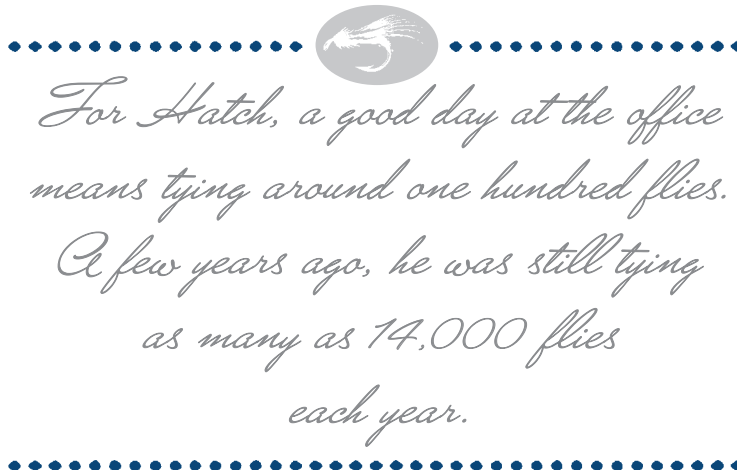 For Hatch, a good day at the office
means tying around one hundred flies.
A few years ago, he was still tying
as many as 14,000 flies
each year.